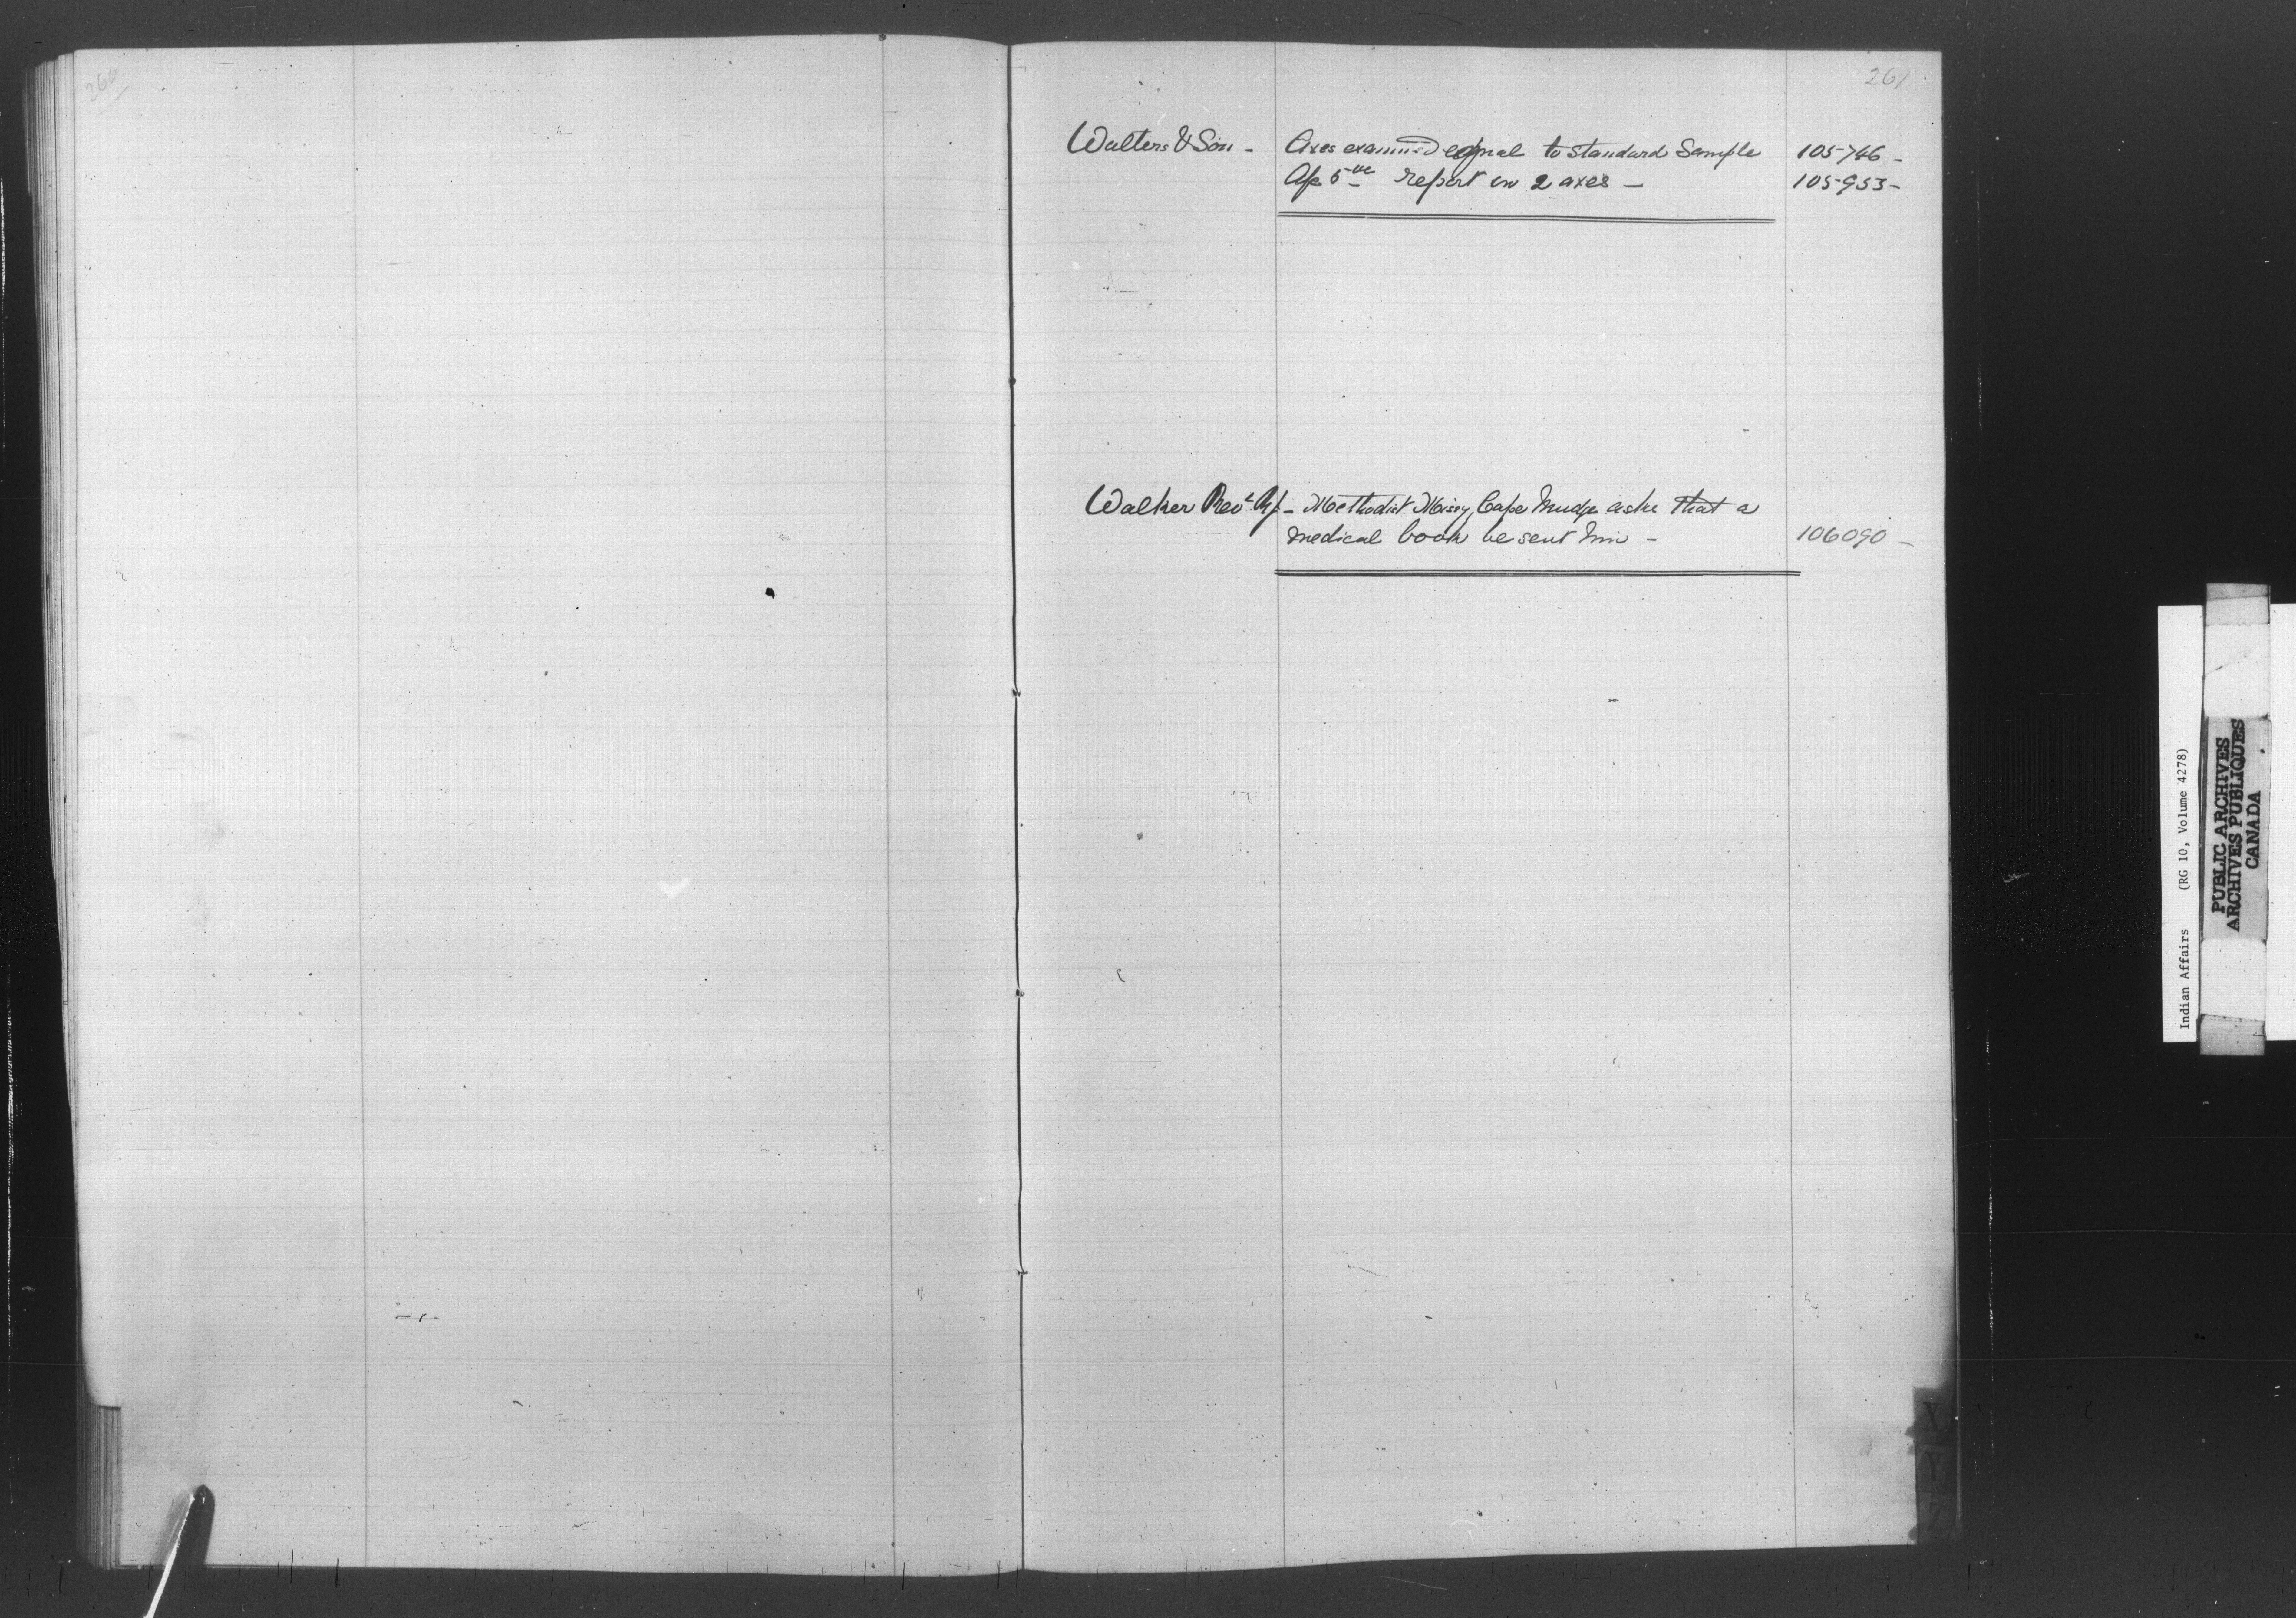 260
261
Walters & Son - Axes examined equal to standard Sample 105746 -
Ap 5th report on 2 axes - 105953 -
Walker Revd - Methodist Missy, Cape Mudge asks that a
medical book be sent him - 106090 -
Indian Affairs (RG 10, Volume 4278)
PUBLIC ARCHIVES
ARCHIVES PUBLIQUES
CANADA